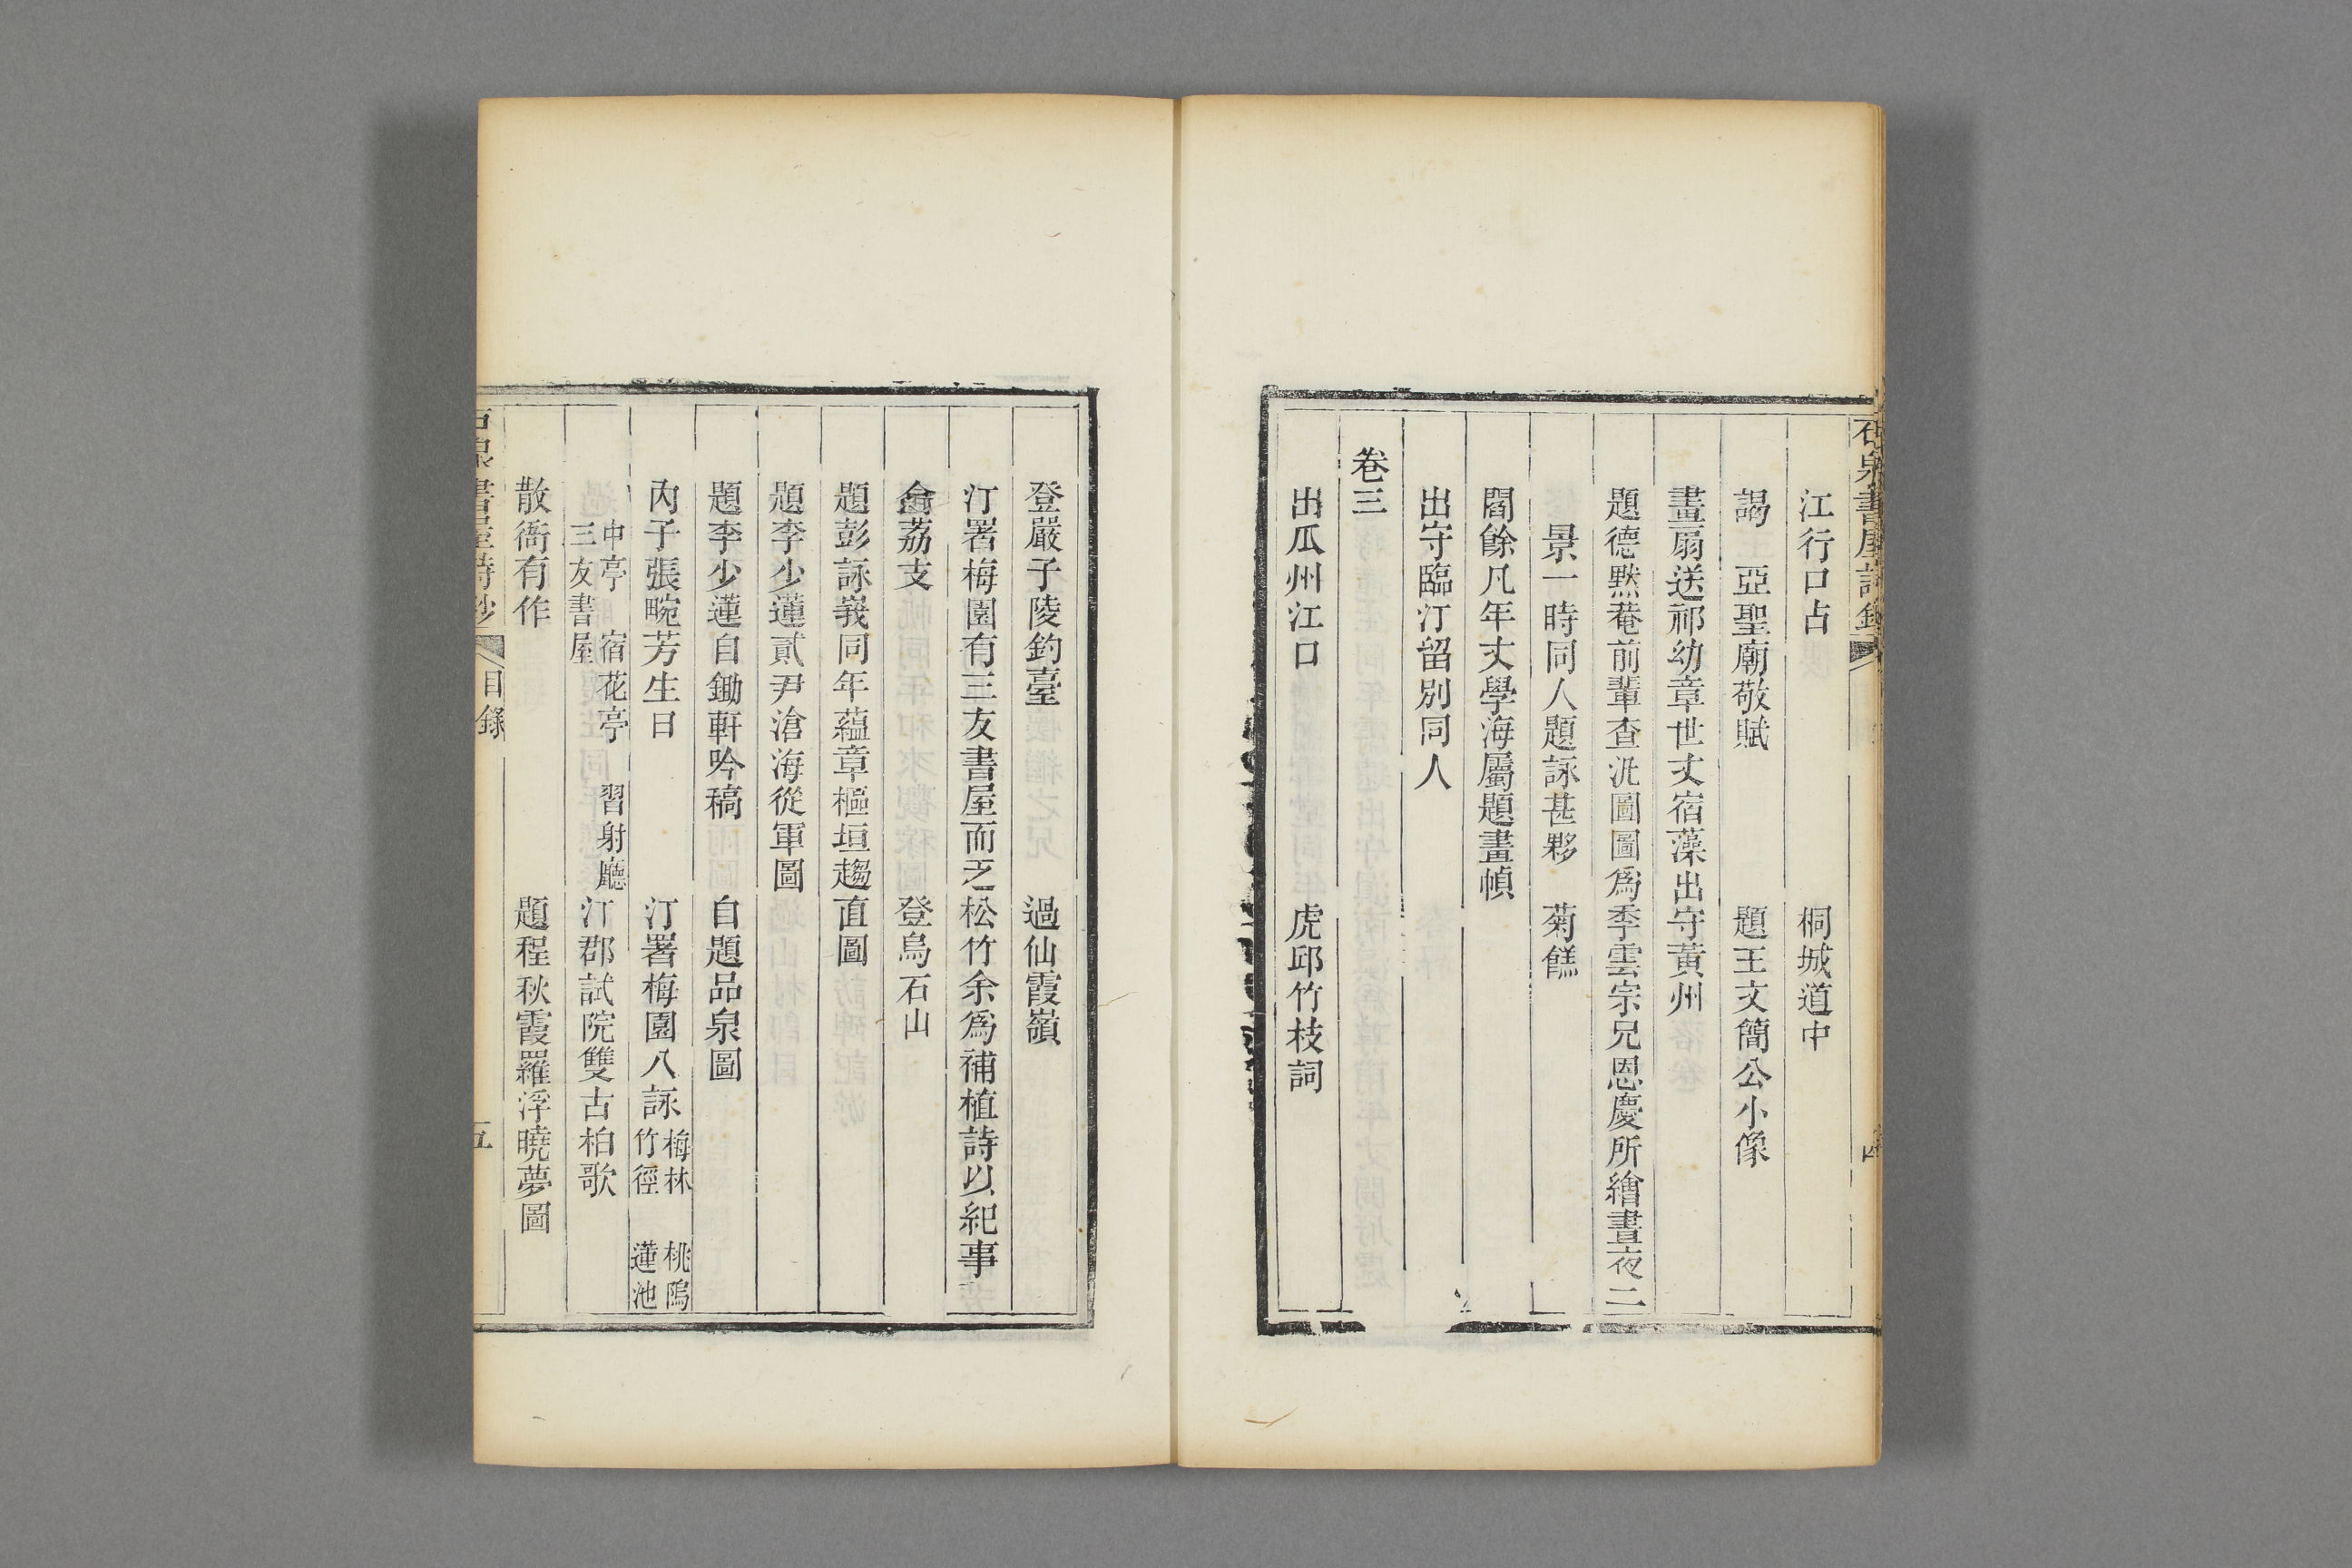 江行口占　桐城道中
謁　亞聖廟敬賦　題王文簡公小像
畫扇送祁幼章世丈宿藻出守黃州
題德默菴前輩查泚圖圖爲季雲宗兄恩慶所繪晝夜二
景一時同人題詠甚夥　菊餻
閻餘凡年丈學海屬題畫幀
出守臨汀留別同人
卷三
出瓜州江口　虎邱竹枝詞
登嚴子陵釣臺　過仙霞嶺
汀署梅園有三友書屋而乏松竹余爲補植詩以紀事
荔支　登烏石山
題彭詠莪同年蘊章樞垣趨直圖
題李少蓮貳尹滄海從軍圖
題李少蓮自鋤軒吟稿　自題品泉圖
內子張畹芳生日　汀署梅園八詠　梅林　桃隖
竹徑　蓮池
中亭　宿花亭　習射廳
三友書屋
汀郡試院雙古柏歌
散衙有作　題程秋霞羅浮曉夢圖
石泉書屋詩鈔　目錄　五